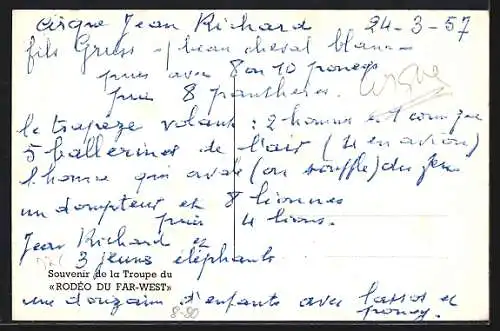 Cirque Jean Richard 24-3-57
fils Gruss - 1 beau cheval blanc -
puis avec 8 ou 10 poneys
puis 8 panthères. Cirque
le trapèze volant : 2 hommes et 1 comique
5 ballerines de l'air (4 en avion)
l'homme qui avale (ou souffle) du feu
un dompteur et 8 lionnes
puis 4 lions.
Jean Richard et
3 jeunes éléphants
Souvenir de la Troupe du
«RODÉO DU FAR-WEST»
une douzain d'enfants avec lassos et
poneys.
8-80